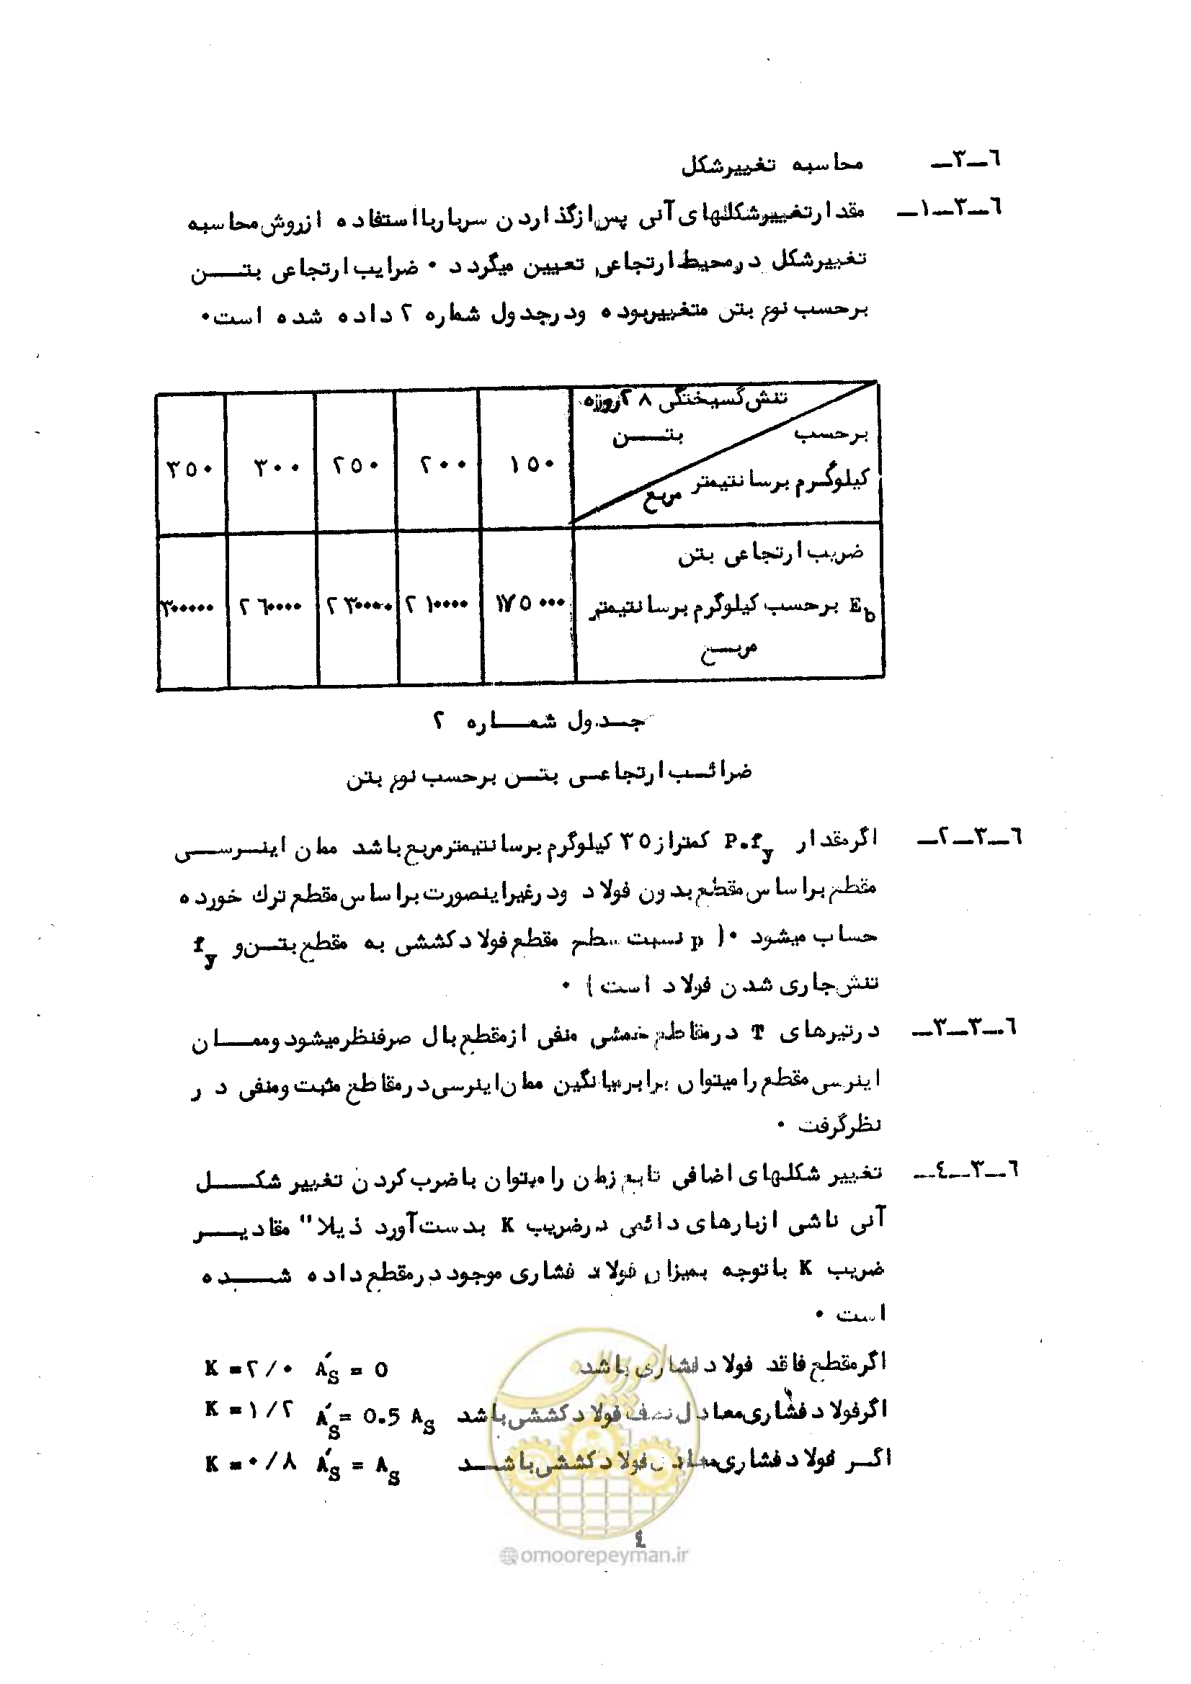 ٦ــ٣ــ محاسبه تغییرشکل
٦ــ٣ــ١ــ مقدارتغییرشکلهای آنی پس ازگذاردن سربار با استفاده ازروش محاسبه
تغییرشکل درمحیط ارتجاعی تعیین میگردد ٠ ضرایب ارتجاعی بتـــن
برحسب نوع بتن متغییربوده ودرجدول شماره ٢ داده شده است٠
تنش گسیختگی ٢٨ روزه
بتـــن
برحسب
کیلوگرم برسانتیمتر مربع
١٥٠ ٢٠٠ ٢٥٠ ٣٠٠ ٣٥٠
ضریب ارتجاعی بتن
E_b برحسب کیلوگرم برسانتیمتر
مربــع
١٧٥٠٠٠ ٢١٠٠٠٠ ٢٣٠٠٠٠ ٢٦٠٠٠٠ ٣٠٠٠٠٠
جــدول شمـــاره ٢
ضرائــب ارتجاعــی بتــن برحسب نوع بتن
٦ــ٣ــ٢ــ اگرمقدار P.f_y کمتراز ٣٥ کیلوگرم برسانتیمترمربع باشد ممان اینــرســـی
مقطع براساس مقطع بدون فولاد ودرغیراینصورت براساس مقطع ترك خورده
حساب میشود ٠( p نسبت سطح مقطع فولادکششی به مقطع بتــن و f_y
تنش جاری شدن فولاد است ) ٠
٦ــ٣ــ٣ــ درتیرهای T درمقاطع خمشی منفی ازمقطع بال صرفنظرمیشود وممــــان
اینرسی مقطع را میتوان برابرمیانگین ممان اینرسی درمقاطع مثبت ومنفی در
نظرگرفت ٠
٦ــ٣ــ٤ــ تغییر شکلهای اضافی تابع زمان را میتوان باضرب کردن تغییر شکـــل
آنی ناشی ازبارهای دائمی درضریب K بدست آورد ذیلا" مقادیـــر
ضریب K باتوجه بمیزان فولاد فشاری موجود درمقطع داده شـــده
است ٠
اگرمقطع فاقد فولاد فشاری باشد A'_S = 0 K = ٢/٠
اگرفولاد فشاری معادل نصف فولادکششی باشد A'_S = 0.5 A_S K = ١/٢
اگــر فولاد فشاری معادل فولادکششی باشــد A'_S = A_S K = ٠/٨
امور پیمان
٤
@omoorepeyman.ir